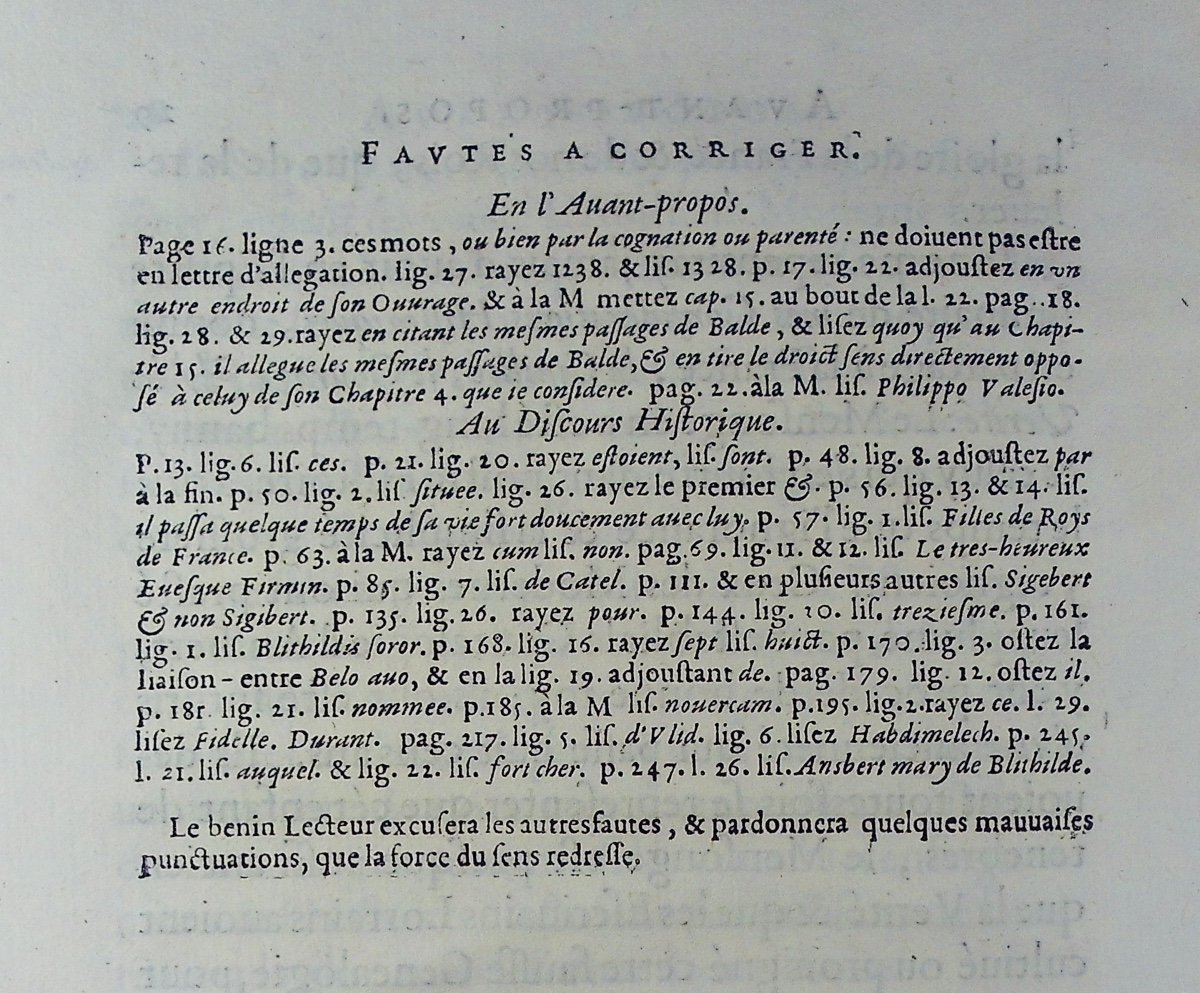 FAVTES A CORRIGER.
En l'Auant-propos.
Page 16. ligne 3. ces mots, ou bien par la cognation ou parenté : ne doiuent pas eſtre
en lettre d'allegation. lig. 27. rayez 1238. & liſ. 1328. p. 17. lig. 22. adjouſtez en vn
autre endroit de ſon Ouurage. & à la M mettez cap. 15. au bout de la l. 22. pag. 18.
lig. 28. & 29. rayez en citant les meſmes paſſages de Balde, & liſez quoy qu'au Chapi-
tre 15. il allegue les meſmes paſſages de Balde, & en tire le droict ſens directement oppo-
ſé à celuy de ſon Chapitre 4. que ie conſidere. pag. 22. à la M. liſ. Philippo Valeſio.
Au Diſcours Hiſtorique.
P. 13. lig. 6. liſ. ces. p. 21. lig. 20. rayez eſtoient, liſ. ſont. p. 48. lig. 8. adjouſtez par
à la fin. p. 50. lig. 2. liſ ſituee. lig. 26. rayez le premier &. p. 56. lig. 13. & 14. liſ.
il paſſa quelque temps de ſa vie fort doucement auec luy. p. 57. lig. 1. liſ. Filles de Roys
de France. p. 63. à la M. rayez cum liſ. non. pag. 69. lig. 11. & 12. liſ. Le tres-heureux
Eueſque Firmin. p. 85. lig. 7. liſ. de Catel. p. 111. & en pluſieurs autres liſ. Sigebert
& non Sigibert. p. 135. lig. 26. rayez pour. p. 144. lig. 20. liſ. trezieſme. p. 161.
lig. 1. liſ. Blithildis ſoror. p. 168. lig. 16. rayez ſept liſ. huict. p. 170. lig. 3. oſtez la
liaiſon - entre Belo auo, & en la lig. 19. adjouſtant de. pag. 179. lig. 12. oſtez il.
p. 181 lig. 21. liſ. nommee. p. 185. à la M liſ. nouercam. p. 195. lig. 2. rayez ce. l. 29.
liſez Fidelle. Durant. pag. 217. lig. 5. liſ. d'Vlid. lig. 6. liſez Habdimelech. p. 245.
l. 21. liſ. auquel. & lig. 22. liſ. fort cher. p. 247. l. 26. liſ. Ansbert mary de Blithilde.
Le benin Lecteur excuſera les autres fautes, & pardonnera quelques mauuaiſes
punctuations, que la force du ſens redreſſe.